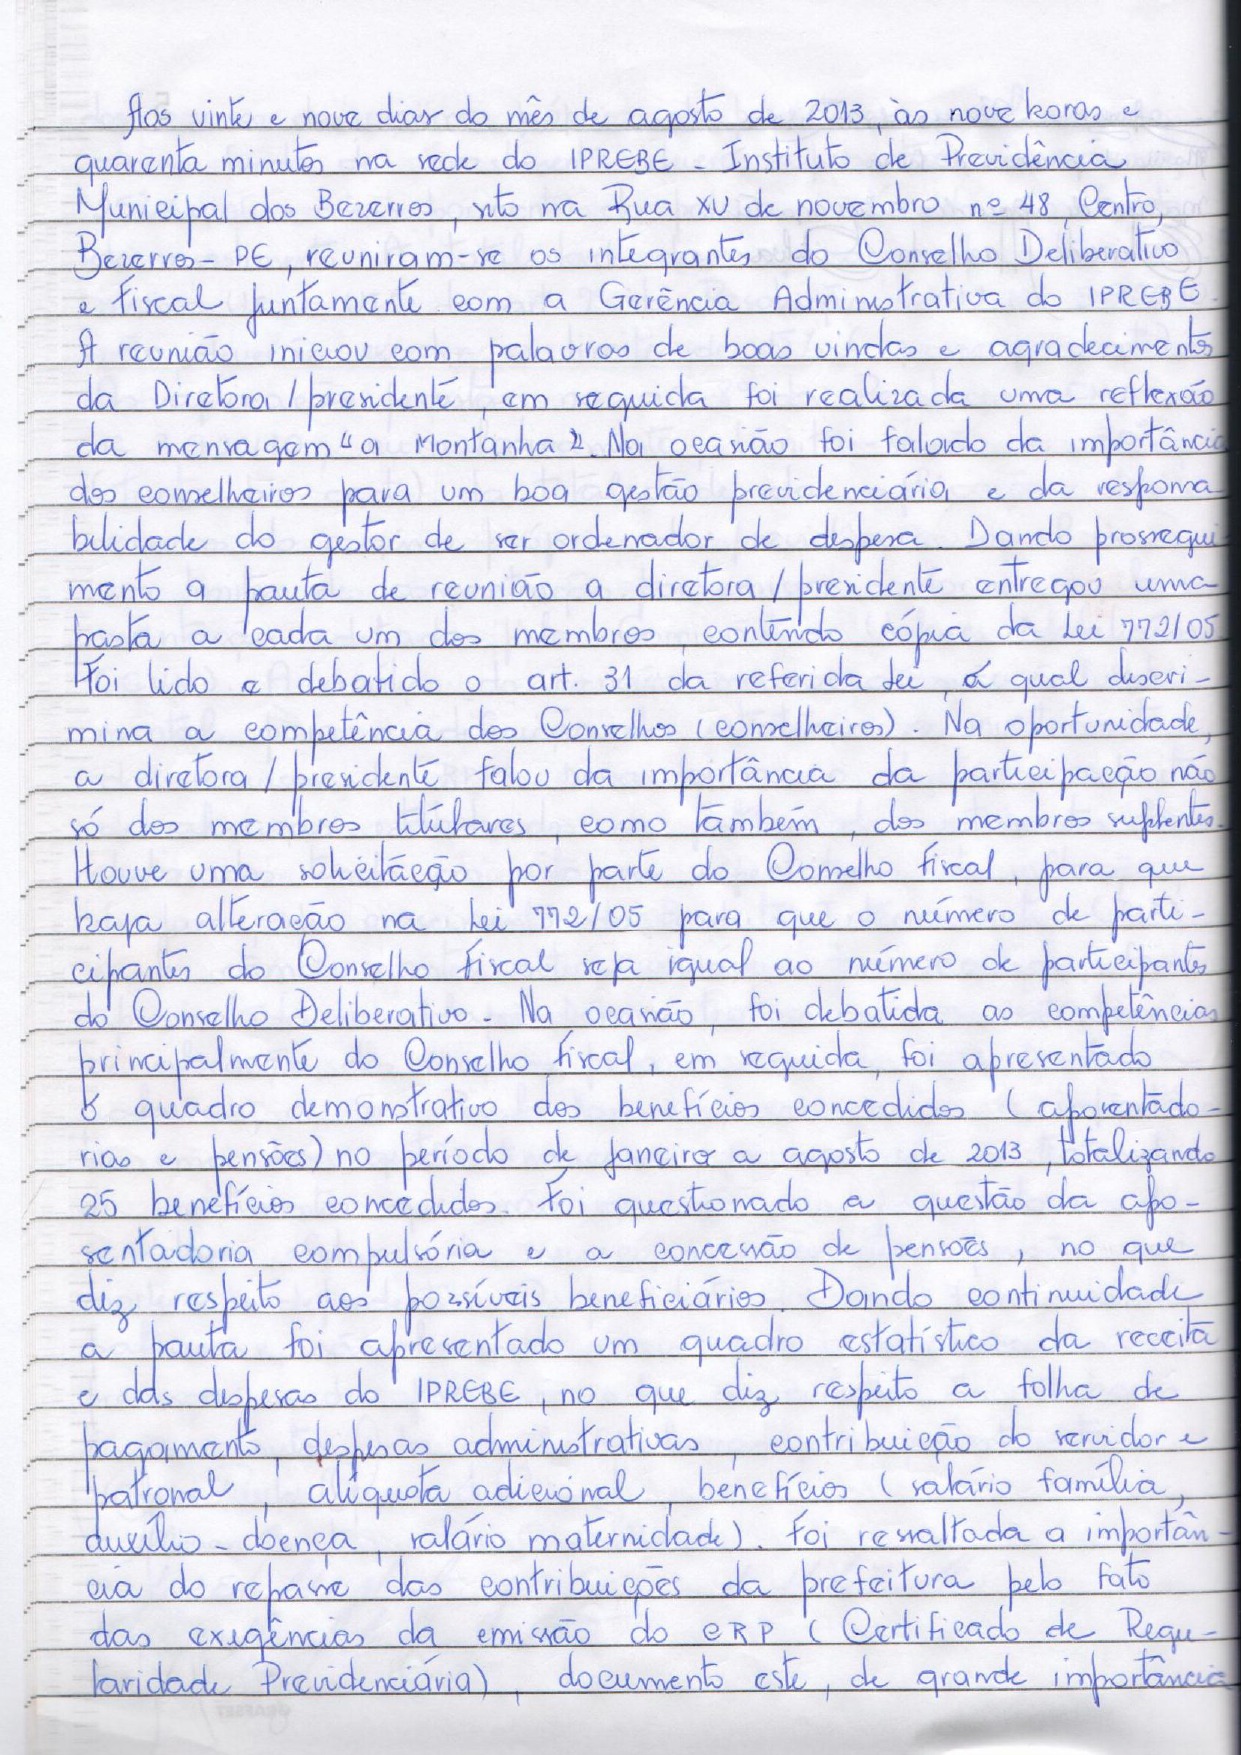 Aos vinte e nove dias do mês de agosto de 2013, às nove horas e
quarenta minutos na sede do IPREBE - Instituto de Previdência
Municipal dos Bezerros, sito na Rua XV de novembro nº 48, Centro,
Bezerros - PE, reuniram-se os integrantes do Conselho Deliberativo
e Fiscal juntamente com a Gerência Administrativa do IPREBE.
A reunião iniciou com palavras de boas vindas e agradecimentos
da Diretora/presidente, em seguida foi realizada uma reflexão
da mensagem "a Montanha". Na ocasião foi falado da importância
dos conselheiros para um boa gestão previdenciária e da responsa
bilidade do gestor de ser ordenador de despesa. Dando prossegui
mento a pauta de reunião a diretora/presidente entregou uma
pasta a cada um dos membros, contendo cópia da Lei 772/05
Foi lido e debatido o art. 31 da referida Lei, a qual discri-
mina a competência dos Conselhos (conselheiros). Na oportunidade,
a diretora/presidente falou da importância da participação não
só dos membros titulares, como também, dos membros suplentes.
Houve uma solicitação por parte do Conselho Fiscal, para que
haja alteração na Lei 772/05 para que o número de parti-
cipantes do Conselho Fiscal seja igual ao número de participantes
do Conselho Deliberativo. Na ocasião, foi debatida as competências
principalmente do Conselho Fiscal, em seguida, foi apresentado
o quadro demonstrativo dos benefícios concedidos (aposentado-
rias e pensões) no período de janeiro a agosto de 2013, totalizando
25 benefícios concedidos. Foi questionado a questão da apo-
sentadoria compulsória e a concessão de pensões, no que
diz respeito aos possíveis beneficiários. Dando continuidade
a pauta foi apresentado um quadro estatístico da receita
e das despesas do IPREBE, no que diz respeito a folha de
pagamento, despesas administrativas, contribuição do servidor e
patronal, alíquota adicional, benefícios (salário família,
auxílio-doença, salário maternidade). Foi ressaltada a importân-
cia do repasse das contribuições da prefeitura pelo fato
das exigências da emissão do CRP (Certificado de Regu-
laridade Previdenciária), documento este, de grande importância